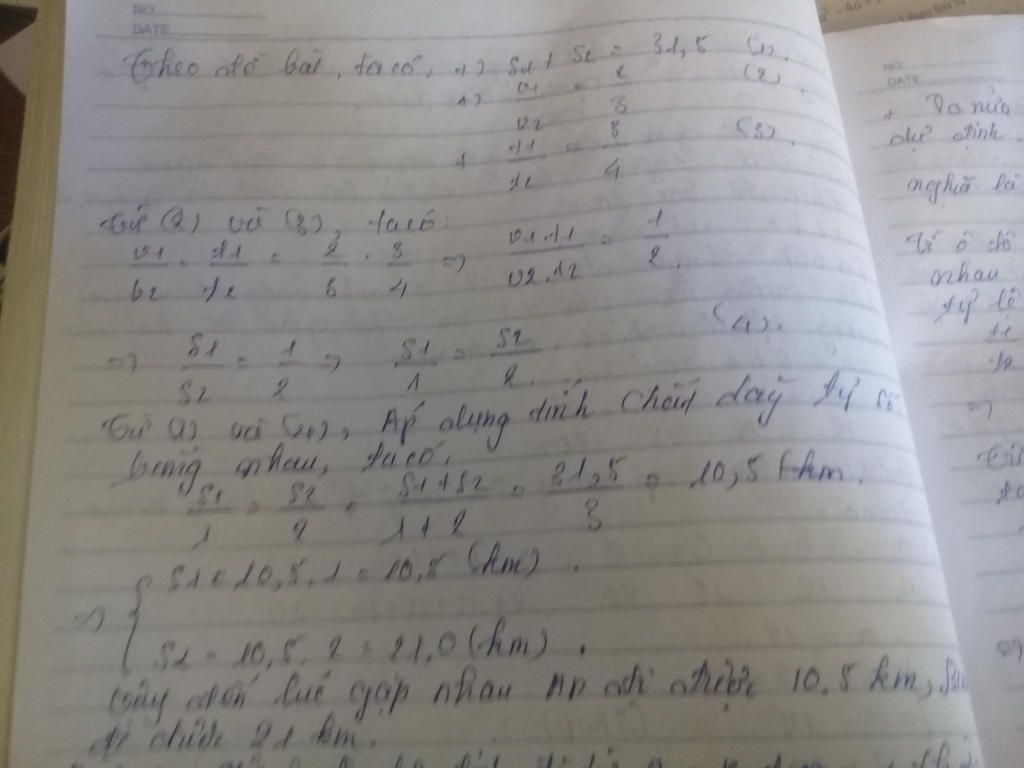 NO.
DATE
Theo đề bài, ta có, +) S1 + S2 = 31,5 (1).
+) v1/v2 = 2/3 (2)
+ t1/t2 = 3/4 (3).
Từ (2) và (3), ta có:
v1/v2 . t1/t2 = 2/3 . 3/4 => v1.t1/v2.t2 = 1/2.
=> S1/S2 = 1/2 => S1/1 = S2/2. (4).
Từ (1) và (4), Áp dụng tính chất dãy tỷ số
bằng nhau, ta có,
S1/1 = S2/2 = S1+S2/1+2 = 31,5/3 = 10,5 (km.
=> { S1 = 10,5.1 = 10,5 (km).
S2 = 10,5.2 = 21,0 (km).
Vậy đến lúc gặp nhau An đi được 10,5 km,
đi được 21 km.
NO
DATE
+ Do nửa
dự định
nghĩa là
Vì ô tô
nhau
tỷ lệ
t1
t2
=>
Từ
=>